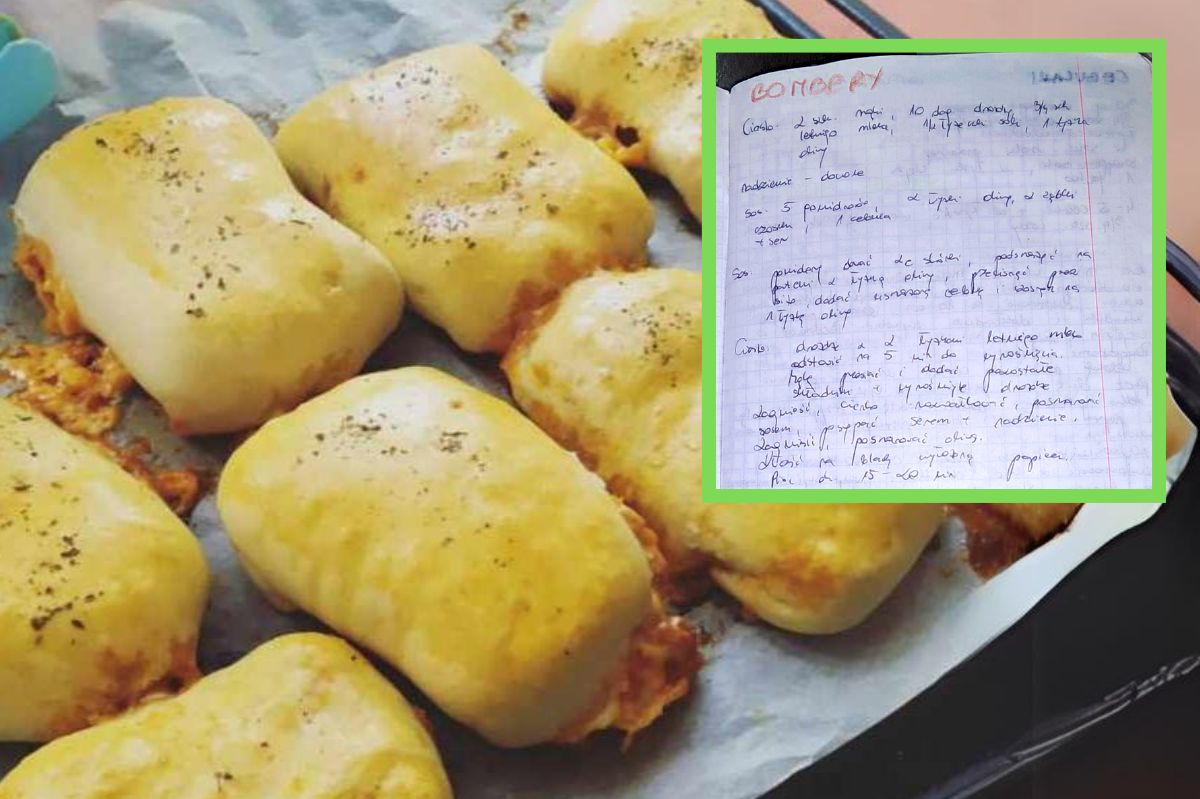 BOMBERY
CEBULAKI
Ciasto: 2 szk. mąki, 10 dag drożdży, 3/4 szk
letniego mleka, 1/2 łyżeczki soli, 1 łyżka
oliwy
nadzienie - dowolne
Sos: 5 pomidorów, 2 łyżki oliwy, 2 ząbki
czosnku, 1 cebula
+ ser
Sos: pomidory obrać ze skórki, podsmażyć na
patelni z łyżką oliwy, przecisnąć przez
sito, dodać usmażoną cebulę i czosnek na
1 łyżkę oliwy
Ciasto: drożdże z 2 łyżkami letniego mleka
odstawić na 5 min do wyrośnięcia.
Mąkę przesiać i dodać pozostałe
składniki + wyrośnięte drożdże
Zagnieść, ciasto rozwałkować, posmarować
sosem, posypać serem + nadzienie.
posmarować oliwą.
Włożyć na blachę wyłożoną papierem.
Piec ok. 15-20 min